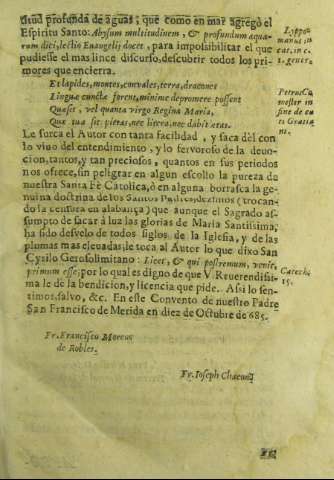 titud profunda de aguas; que como en mar agregò el
Espiritu Santo: Abysum multitudinem, & profundum aqua-
rum dici, lectio Euangelij docet, para impossibilitar el que
pudiesse el mas lince discurso, descubrir todos los pri-
mores que encierra.
Lyppo-
manus in
cat. in c.
1. genes.
Et lapides, montes, convales, terra, dracones
Linguæ cunctæ forent, minime depromere possent
Qualis, vel quanta virgo Regina Maria,
Quæ tua sit pietas, nec litera, nec dabit ætas.
Petrus Co
mestor in
fine de ca
ti Gratia
ni.
Le surca el Autor con tanta facilidad, y saca dèl con
lo vivo del entendimiento, y lo fervoroso de la devo-
cion, tantos, y tan preciosos, quantos en sus periodos
nos ofrece, sin peligrar en algun escollo la pureza de
nuestra Santa Fè Catolica, ò en alguna borrasca la ge-
nuina doctrina de los Santos Padres, dezimos (trocan-
do la censura en alabança) que aunque el Sagrado as-
sumpto de sacar à luz las glorias de Maria Santissima,
ha sido desvelo de todos siglos de la Iglesia, y de las
plumas mas elevadas, le toca al Autor lo que dixo San
Cyrilo Gerosolimitano: Licet, & qui postremum, venit,
primum esse; por lo qual es digno de que V. Reuerendissi-
ma le de la bendicion, y licencia que pide. Assi lo sen-
timos, salvo, &c. En este Convento de nuestro Padre
San Francisco de Merida en diez de Octubre de 685.
Catech.
15.
Fr. Francisco Moreno
de Robles.
Fr. Joseph